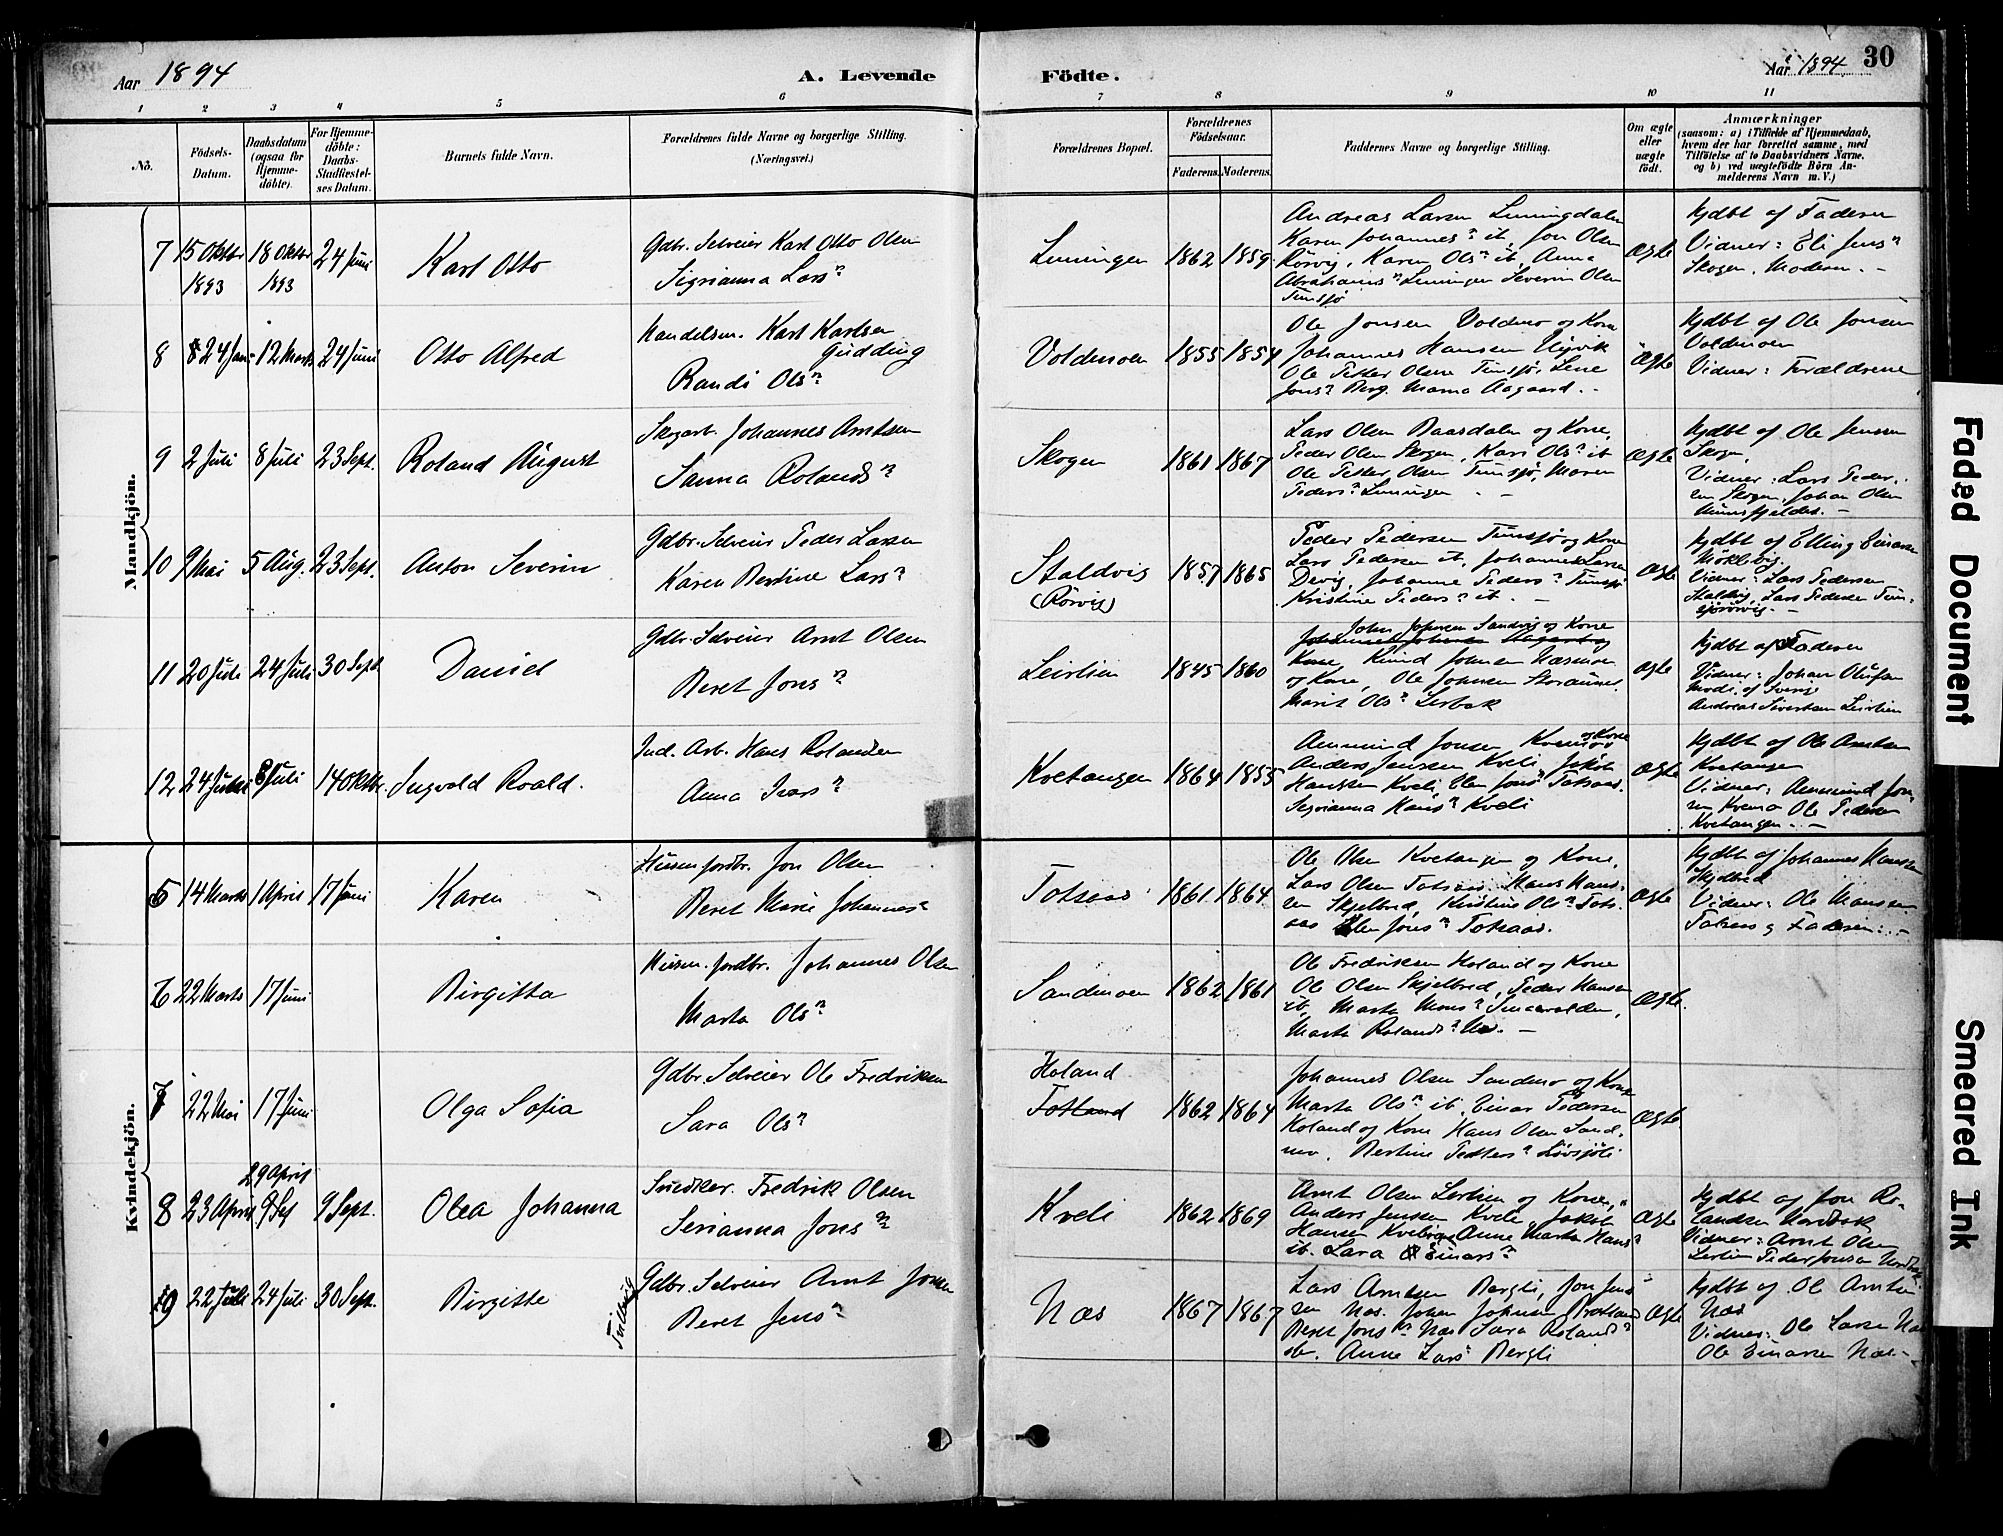 Aar 1894
A. Levende
Födte.
Aar 1894.
30
1 2 3 4 5 6 7 8 9 10 11
No.
Födsels-Datum.
Daabsdatum (ogsaa for Hjemme-döbte).
For Hjemme-döbte: Daabs-Stadfæstel-ses Datum.
Barnets fulde Navn.
Forældrenes fulde Navne og borgerlige Stilling.
(Næringsvei.)
Forældrenes Bopæl.
Forældrenes Födselsaar.
Faderens. Moderens.
Faddernes Navne og borgerlige Stilling.
Om ægte eller uægte födt.
Anmærkninger
(saasom: a) i Tilfælde af Hjemmedaab,
hvem der har forrettet samme, med
Tilföielse af to Daabsvidners Navne,
og b) ved uægtefödte Börn An-
melderens Navn m. V.)
Mandkjön.
7 15 Oktbr 1893 18 Oktbr 1893 24 Juni Karl Otto
Gdbr. Selveier Karl Otto Olsen
Sigrianna Lars?
Lenningen 1862 1859
Andreas Larsen Lenningdalen
Karen Johannes? ib. Jon Olsen
Rörvig, Karen Ols? ib, Anna
Abrahams? Lenningen Severin Olsen
Tunsjö
Ægte
hjdbt af Faderen
Vidner: Eli Jens?
Skogen, Moderen. -
8 24 Jan 12 Marts 24 Juni Otto Alfred
Handelsm. Karl Karlsen
Gudding
Randi Ols?
Voldmoen 1855 1854
Ole Jonsen Voldmo og Kone
Johannes Hansen
Ole Petter Olsen Tunsjö, Lene
Jons? Berg. Mama Aagaard. -
Ægte
hjdbt af Ole Jonsen
Voldmoen
Vidner: Forældrene
9 2 Juli 8 Juli 23 Sept. Roland August
Skogarb. Johannes Arntsen
Sanna Rolands?
Skogen 1861 1867
Lars Olsen Daasdalen og Kone,
Peder Olsen Skogen, Kari Ols? ib
Ole Petter Olsen Tunsjö, Maren
Peders? Lenningen
Ægte
hjdbt af Ole Jensen
Skogen,
Vidner: Lars Peder-
sen Skogen, Johan Olsen
10 9 Mai 5 Aug. 23 Sept. Anton Severin
Gdbr. Selveier Peder Larsen
Karen Bertine Lars?
Staldvig
(Rörvig)
1857 1865
Peder Pedersen Tunsjö og Kone
Lars Pedersen ib, Johannes Larsen
Devig, Johanne Peders? Tunsjö
Kristine Peders? ib. -
Ægte
hjdbt af Elling Einarsen
Mökkelvig
Vidner: Lars Pedersen
Staldvig, Lars Pedersen Tun-
sjörörvig. -
11 20 Juli 24 Juli 30 Sept. Daniel
Gdbr. Selveier Arnt Olsen
Beret Jons?
Leirlien 1845 1860
John Johnsen Sandvig og Kone
Kone, Knud Johnsen Næsmoen
og Kone, Ole Johnsen Storaunet.
Marit Ols? Lerbak
Ægte
hjdbt af Faderen
Vidner: Johan Olufsen
af Sverige
Andreas Sivertsen Leirlien
12 24 Juni 8 Juli 14 Oktbr. Ingvald Roald.
Ind. Arb. Hans Rolandsen
Anna Ivars?
Kvetangen 1864 1855
Ammund Jonsen Kvemo og Kone
Anders Jenssen Kveli, Jakob
Hanssen Kveli, Elen Jons? Totsaas.
Serianna Hans? Kveli
Ægte
hjdbt af Ole Arntsen
Kvetangen
Vidner: Ammund Jon-
sen Kvemo Ole Pedersen
Kvetangen. -
Kvindekjön.
5 14 Marts 1 April 17 Juni Karen
Husm. jordbr. Jon Olsen
Beret Marie Johannes?
Totsaas 1861 1864
Ole Olsen Kvetangen og Kone,
Lars Olsen Totsaas. Hans Hans-
sen Skjelbred, Kristine Ols? Tots-
aas Elen Jons? Totsaas.
Ægte
hjdbt af Johannes Hansen
Skjelbred
Vidner: Ole Hansen
Totsaas og Faderen. -
6 22 Marts 17 Juni Birgitta
Husm. jordbr. Johannes Olsen
Marta Ols?
Sandmoen 1862 1861
Ole Fredriksen Holand og Kone
Ole Olsen Skjelbred, Peder Hansen
ib, Marta Mons? Smaavolden,
Marta Rolands? Mo. -
Ægte.
7 22 Mai 17 Juni Olga Sofia
Gdbr. Selveier Ole Fredriksen
Sara Ols?
Holand
Totland
1862 1864
Johannes Olsen Sandmo og Kone
Marta Ols? ib, Einar Pedersen
Holand og Kone Hans Olsen Sand-
mo, Bertine Petters? Lövsjöli
Ægte
8 23 April 29 April 9 Sept 9 Sept. Olea Johanna
Snedker. Fredrik Olsen
Serianna Jons?
Kveli 1862 1869
Arnt Olsen Lerlien og Kone,
Anders Jenssen Kveli, Jakob
Hansen Kveli, Anne Marta Hans?
ib. Sara Einars?
Ægte
hjdbt af Jon Ro-
landsen Nordbak
Vidner: Arnt Olsen
Lerlien Peder Jonsen Nordbak
9 22 Juli 24 Juli 30 Sept. Birgitte
Tvilling
Gdbr. Selveier Arnt Jonsen
Beret Jens?
Næs 1867 1867
Lars Arntsen Bergli, Jon Jens-
sen Næs. Johan Johnsen
Beret Jons? Næs Sara Rolands?
ib. Anne Lars? Bergli
Ægte
hjdbt af Ole Arntsen
Næs
Vidner: Ole Larsen Næs
Ole Einarsen Næs. -
Faded Document
Smeared Ink